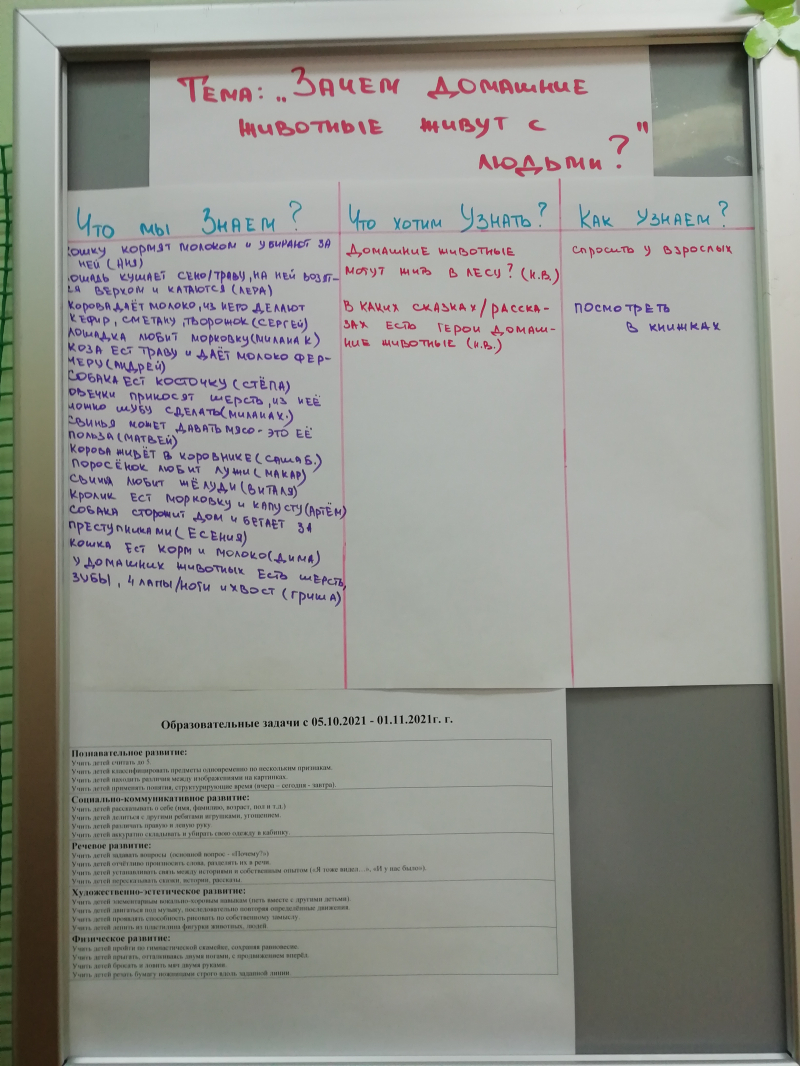 Тема: „Зачем домашние
животные живут с
людьми?"
Что мы знаем?
кошку кормят молоком и убирают за
ней (Аня)
лошадь кушает сено/траву, на ней возят-
ся верхом и катаются (Лера)
корова даёт молоко, из него делают
кефир, сметану, творожок (Сергей)
лошадка любит морковку (Милана К)
коза ест траву и даёт молоко фер-
меру (Андрей)
собака ест косточку (Стёпа)
овечки приносят шерсть, из неё
можно шубу сделать (Милана Х.)
свинья может давать мясо - это её
польза (Матвей)
корова живёт в коровнике (Саша Б.)
поросёнок любит лужи (Макар)
свинка любит жёлуди (Виталя)
кролик ест морковку и капусту (Артём)
собака сторожит дом и бегает за
преступниками (Есения)
кошка ест корм и молоко (Дима)
у домашних животных есть шерсть,
зубы, 4 лапы/ноги и хвост (Гриша)
Что хотим узнать?
Домашние животные
могут жить в лесу? (И.В.)
В каких сказках/расска-
зах есть герои домаш-
ние животные (И.В.)
Как узнаем?
спросить у взрослых
посмотреть
в книжках
Образовательные задачи с 05.10.2021 - 01.11.2021г. г.
Познавательное развитие:
Учить детей считать до 5.
Учить детей классифицировать предметы одновременно по нескольким признакам.
Учить детей находить различия между изображениями на картинках.
Учить детей применять понятия, структурирующие время (вчера – сегодня - завтра).
Социально-коммуникативное развитие:
Учить детей рассказывать о себе (имя, фамилию, возраст, пол и т.д.)
Учить детей делиться с другими ребятами игрушками, угощением.
Учить детей различать правую и левую руку.
Учить детей аккуратно складывать и убирать свою одежду в кабинку.
Речевое развитие:
Учить детей задавать вопросы (основной вопрос – «Почему?»)
Учить детей отчётливо произносить слова, разделять их в речи.
Учить детей устанавливать связь между историями и собственным опытом («Я тоже видел…», «И у нас было»).
Учить детей пересказывать сказки, истории, рассказы.
Художественно-эстетическое развитие:
Учить детей элементарным вокально-хоровым навыкам (петь вместе с другими детьми).
Учить детей двигаться под музыку, последовательно повторяя определённые движения.
Учить детей проявлять способность рисовать по собственному замыслу.
Учить детей лепить из пластилина фигурки животных, людей.
Физическое развитие:
Учить детей пройти по гимнастической скамейке, сохраняя равновесие.
Учить детей прыгать, отталкиваясь двумя ногами, с продвижением вперёд.
Учить детей бросать и ловить мяч двумя руками.
Учить детей резать бумагу ножницами строго вдоль заданной линии.